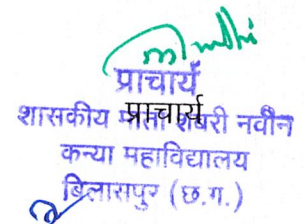 प्राचार्य
प्राचार्य
शासकीय माता शबरी नवीन
कन्या महाविद्यालय
बिलासपुर (छ.ग.)